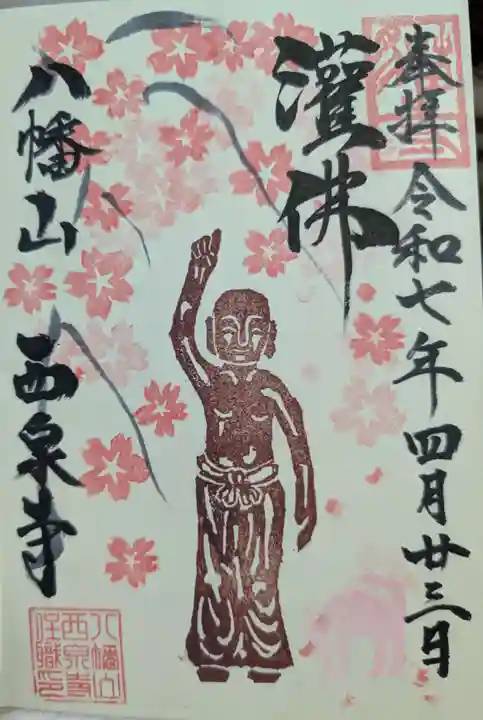 奉拝
令和七年四月廿三日
灌佛
八幡山 西泉寺
八幡山
西泉寺
住職印